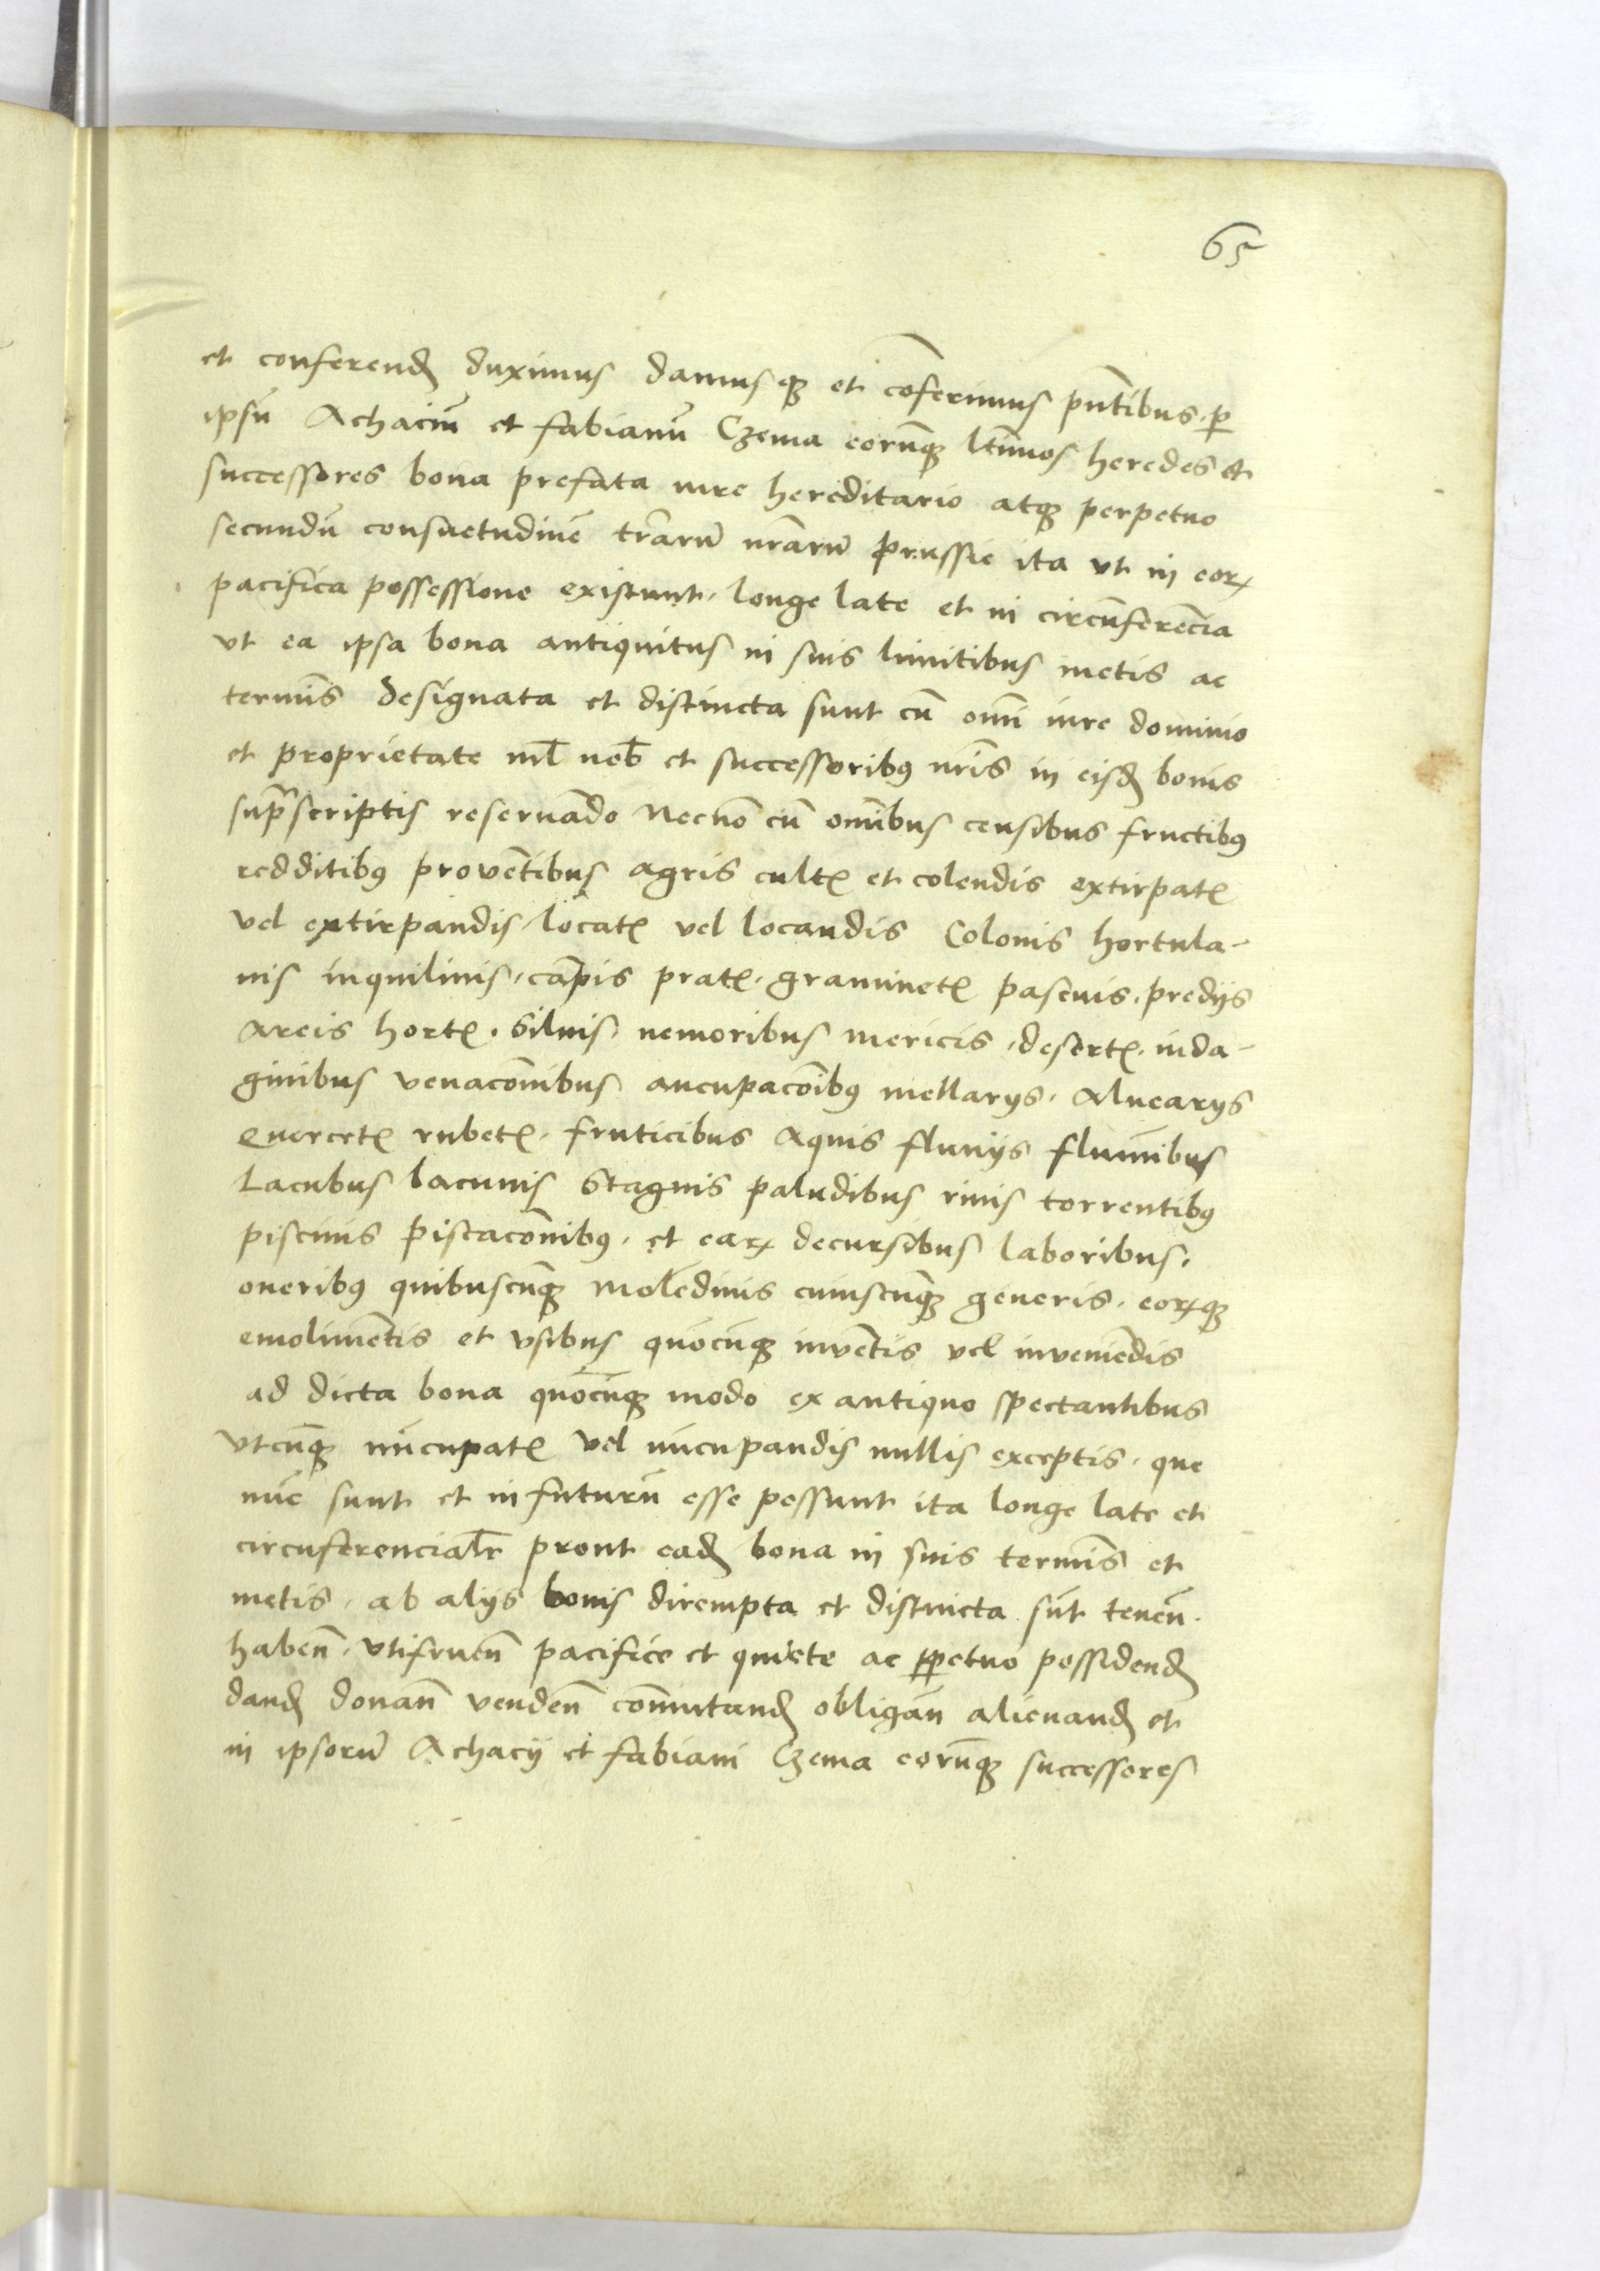 65
et conferend duximus damusq; et cōferimus pn̄tibus. p
ipsū Achaciū et fabianū Czema eorūq; ltīmos heredes et
successores bona prefata iure hereditario atq; perpetuo
secundū consuetudinē trarū nrarū prussie ita vt in eorꝝ
pacifica possessione existunt. longe late et in circūferēcia
vt ea ipsa bona antiquitus in suis limitibus metis ac
termīs designata et distincta sunt cū omī iure dominio
et proprietate nīl nob et successoribꝰ nrīs in eisd bonis
suprascriptis reseruādo Necnō cū omībus censibus fructibꝰ
redditibꝰ provētibus agris cultꝭ et colendis extirpatꝭ
vel extirpandis. locatꝭ vel locandis Colonis hortula-
nis inquilinis. cāpis pratꝭ. graminetꝭ pascuis. predijs
Areis hortꝭ. Siluis. nemoribus mericis. desertꝭ. inda-
ginibus venacōnibus aucupacōibꝰ mellarijs. Aluearijs
Quercetꝭ rubetꝭ. fruticibus Aquis fluuijs flumībus
Lacubus lacunis Stagnis paludibus riuis torrentibꝰ
piscinis piscacōnibꝰ. et earꝝ decursibus laboribus.
oneribꝰ quibuscūq; Molēdinis cuiuscūq; generis. eorꝝq;
emolimētis et vsibus quocūq; invētis vel inveniēdis
ad dicta bona quocūq; modo ex antiquo spectantibus
Vtcūq; nūcupatꝭ vel nūcupandis nullis exceptis. que
nūc sunt et in futurū esse possunt ita longe late et
circūferencialr prout ead bona in suis termīs et
metis. ab alijs bonis dirempta et distincta sūt tenēn.
habeñ. vtifrueñ pacifice et quiete ac ppetuo possidend
dand donañ vendeñ cōmutand obligañ alienand et
in ipsorū Achacij et fabiani Czema eorūq; successores